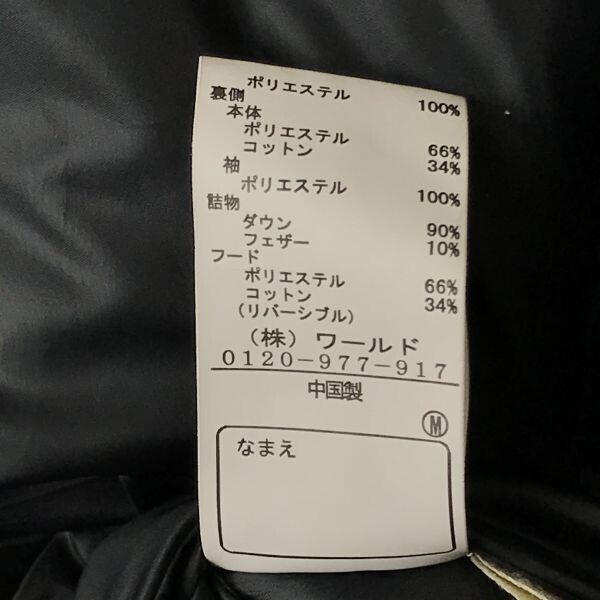 ポリエステル 100%
裏側
本体
ポリエステル 66%
コットン 34%
袖
ポリエステル 100%
詰物
ダウン 90%
フェザー 10%
フード
ポリエステル 66%
コットン 34%
(リバーシブル)
(株)ワールド
0120-977-917
中国製
M
なまえ